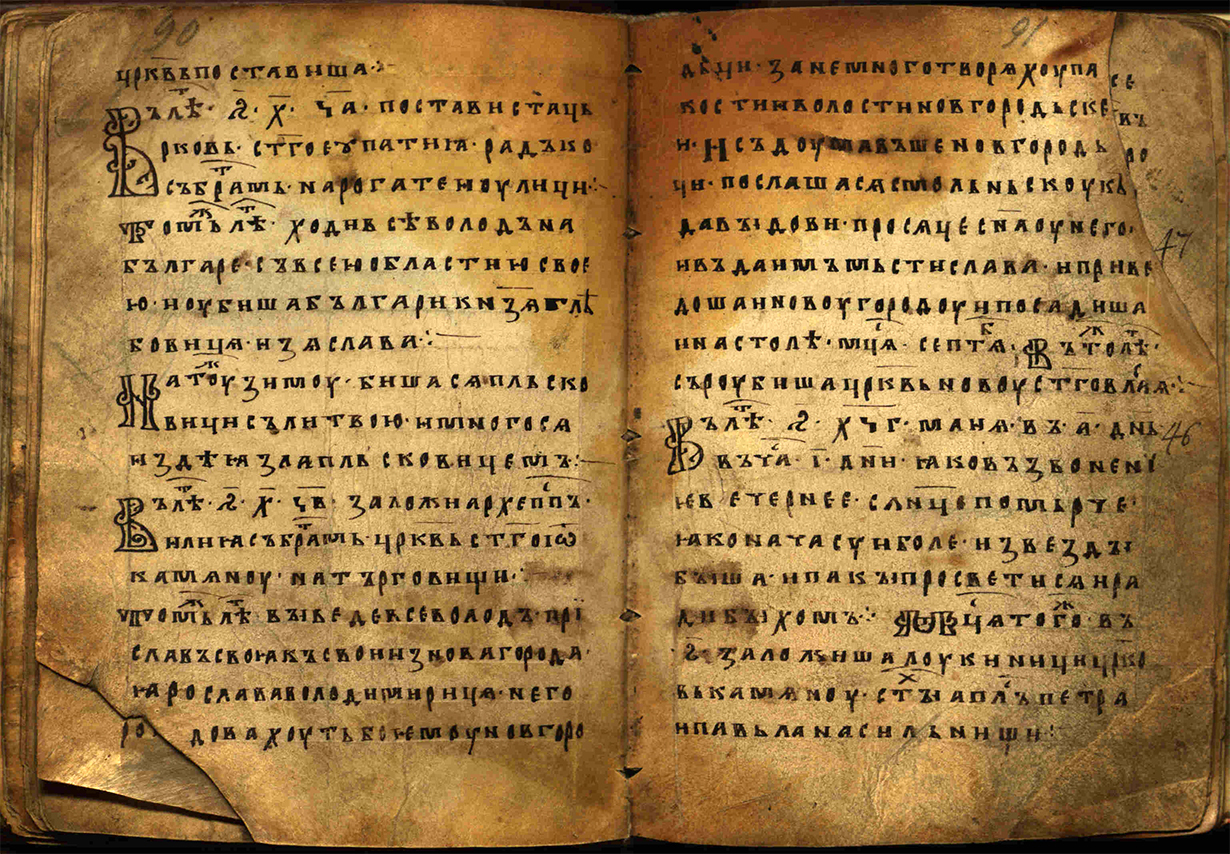 90
црквъпоставиша·:
Въ лѣт· ҂ѕ· х҃· ч҃а· поставистаць
рковь· ст҃гоеупатиꙗ· радъко
събратмь· нарогатеиоулици·:
Въ томь лѣт· ходивсѣволодъна
българе· съвсеюобластиюсвое
ю· иоубишабългарикнѧзѧглѣ
бовицѧ· изѧслава·:
На тоужзимоу· бишасѧпльско
вицисълитвою· имногосѧ
издѣꙗзлапльсковицемъ·:
Въ лѣт· ҂ѕ· х҃· ч҃в· заложиархеп҃пъ·
илиꙗсъбратмь· црквьст҃гоіѡ҃
камѧноу· натърговищи·:
Въ томьжлѣт· выведевсеволодъ· прі
славъсвоꙗкъсвоиизновагорода·
ꙗрослававолодимирицѧ· него
довахоутьбоюемоуновгоро
91
дьци· занемноготворѧхоупа
се
костииволостиновгородьске
въ
и· Исъдоумавъшеновгородь
ро
ци· послашасѧсмольньскоукъ
давыдови· просѧцеснаоунего·
47
ивъдаимъмьстислава· иприве
дошаиновоугородоуипосадиша
иинастолѣ· мцѧ· септѧб· Въ тожлѣт·
съроубишацрквьновоуст҃говлсиѧ·:
Въ лѣт· ҂ѕ· хч҃г· маиѧ· въ· а҃· днь
46
въча· і҃· дни· ꙗковъзвонени
ꙗвечернее· слнцепомьрче·
ꙗконачасуиболе· извезды
быша· ипакыпросветисѧира
дибыхомъ·: Томь мцѧтогожвъ
҂ѕ· заложишалоукиницицркo
вькамѧноу· стыхаплъпетра
ипавьланасильнищи·: